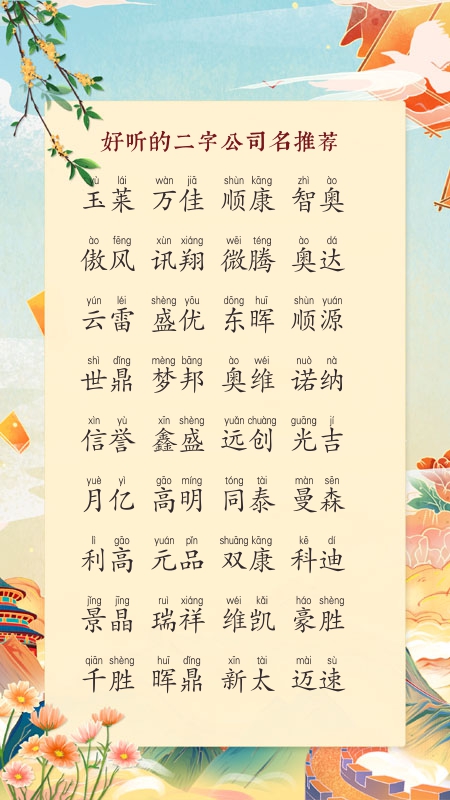 好听的二字公司名推荐
yù lái wàn jiā shùn kāng zhì ào
玉莱 万佳 顺康 智奥
ào fēng xùn xiáng wēi téng ào dá
傲风 讯翔 微腾 奥达
yún léi shèng yōu dōng huī shùn yuán
云雷 盛优 东晖 顺源
shì dǐng mèng bāng ào wéi nuò nà
世鼎 梦邦 奥维 诺纳
xìn yù xīn shèng yuǎn chuàng guāng jí
信誉 鑫盛 远创 光吉
yuè yì gāo míng tóng tài màn sēn
月亿 高明 同泰 曼森
lì gāo yuán pǐn shuāng kāng kē dí
利高 元品 双康 科迪
jǐng jīng ruì xiáng wéi kǎi háo shèng
景晶 瑞祥 维凯 豪胜
qiān shèng huī dǐng xīn tài mài sù
千胜 晖鼎 新太 迈速